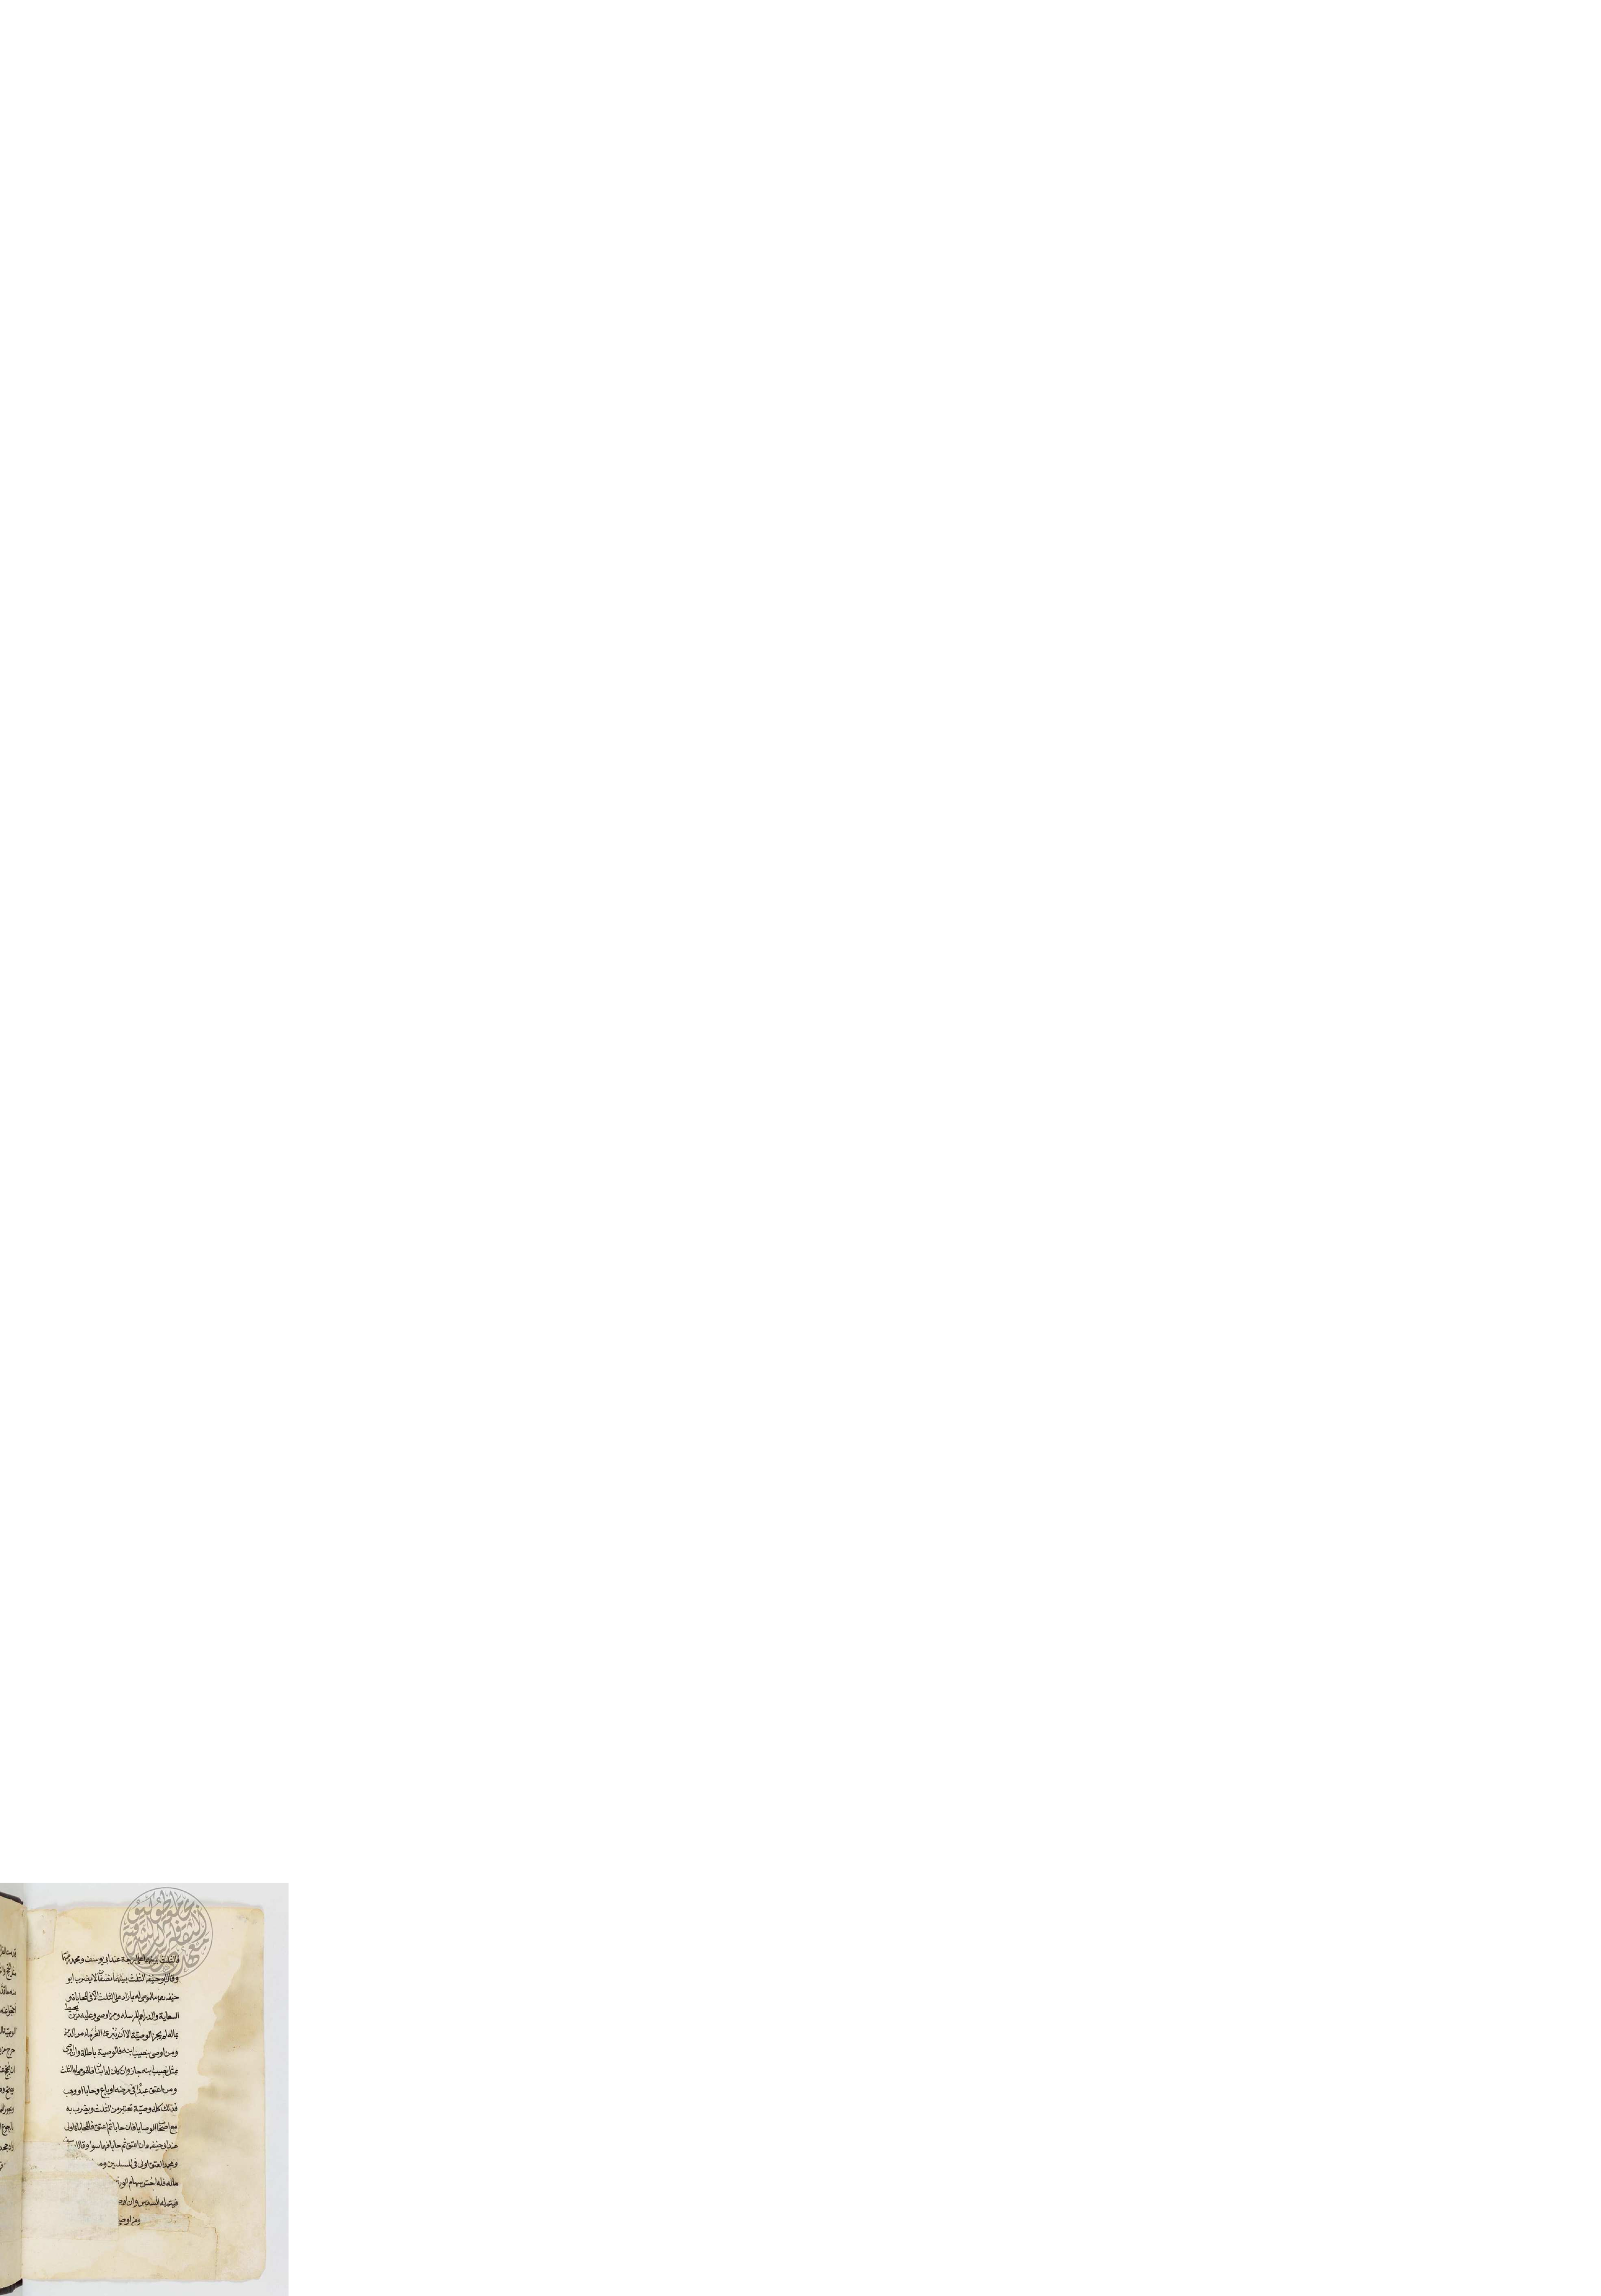 فالثلث بينهما على اربعة عند ابى يوسف ومحمد
وقال ابو حنيفه الثلث بينهما نصفان لا يضرب ابو
حنيفه للموصى له بما زاد على الثلث الا فى المحاباة و
السعاية والدراهم المرسله ومن اوصى وعليه دين يحيط
بماله لم يجز الوصية الا ان يبرئ الغرماء من الدين
ومن اوصى بنصيب ابنه فالوصية باطلة وان اوصى
بمثل نصيب ابنه جاز وان كان له ابنان فللموصى له الثلث
ومن اعتق عبدا فى مرضه او باع وحابا او وهب
فذلك كله وصية تعتبر من الثلث ويضرب به
مع اصحاب الوصايا فان حابا ثم اعتق فالمحاباة اولى
عند ابى حنيفه وان اعتق ثم حابا فهما سوا وقال
ومحمد العتق اولى فى المسلتين
ماله فله اخس سهام
فيتم له السدس وان
ومن اوصى